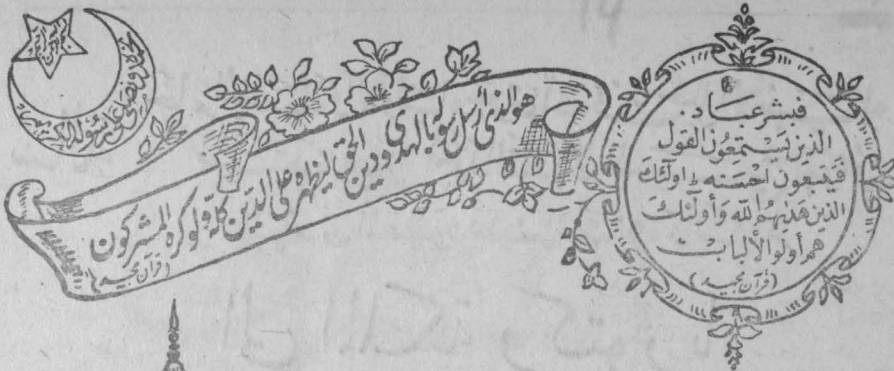 فبشر عباد.
الذين يستمعون القول
فيتبعون احسنه اولٰئك
الذين هديهم الله وأولٰئك
هم أولو الألباب
(قرآن مجيد)
هو الذي أرسل رسوله بالهدى ودين الحق ليظهره على الدين كله ولو كره المشركون
(قرآن مجيد)
نحمده ونصلي على رسوله الكريم